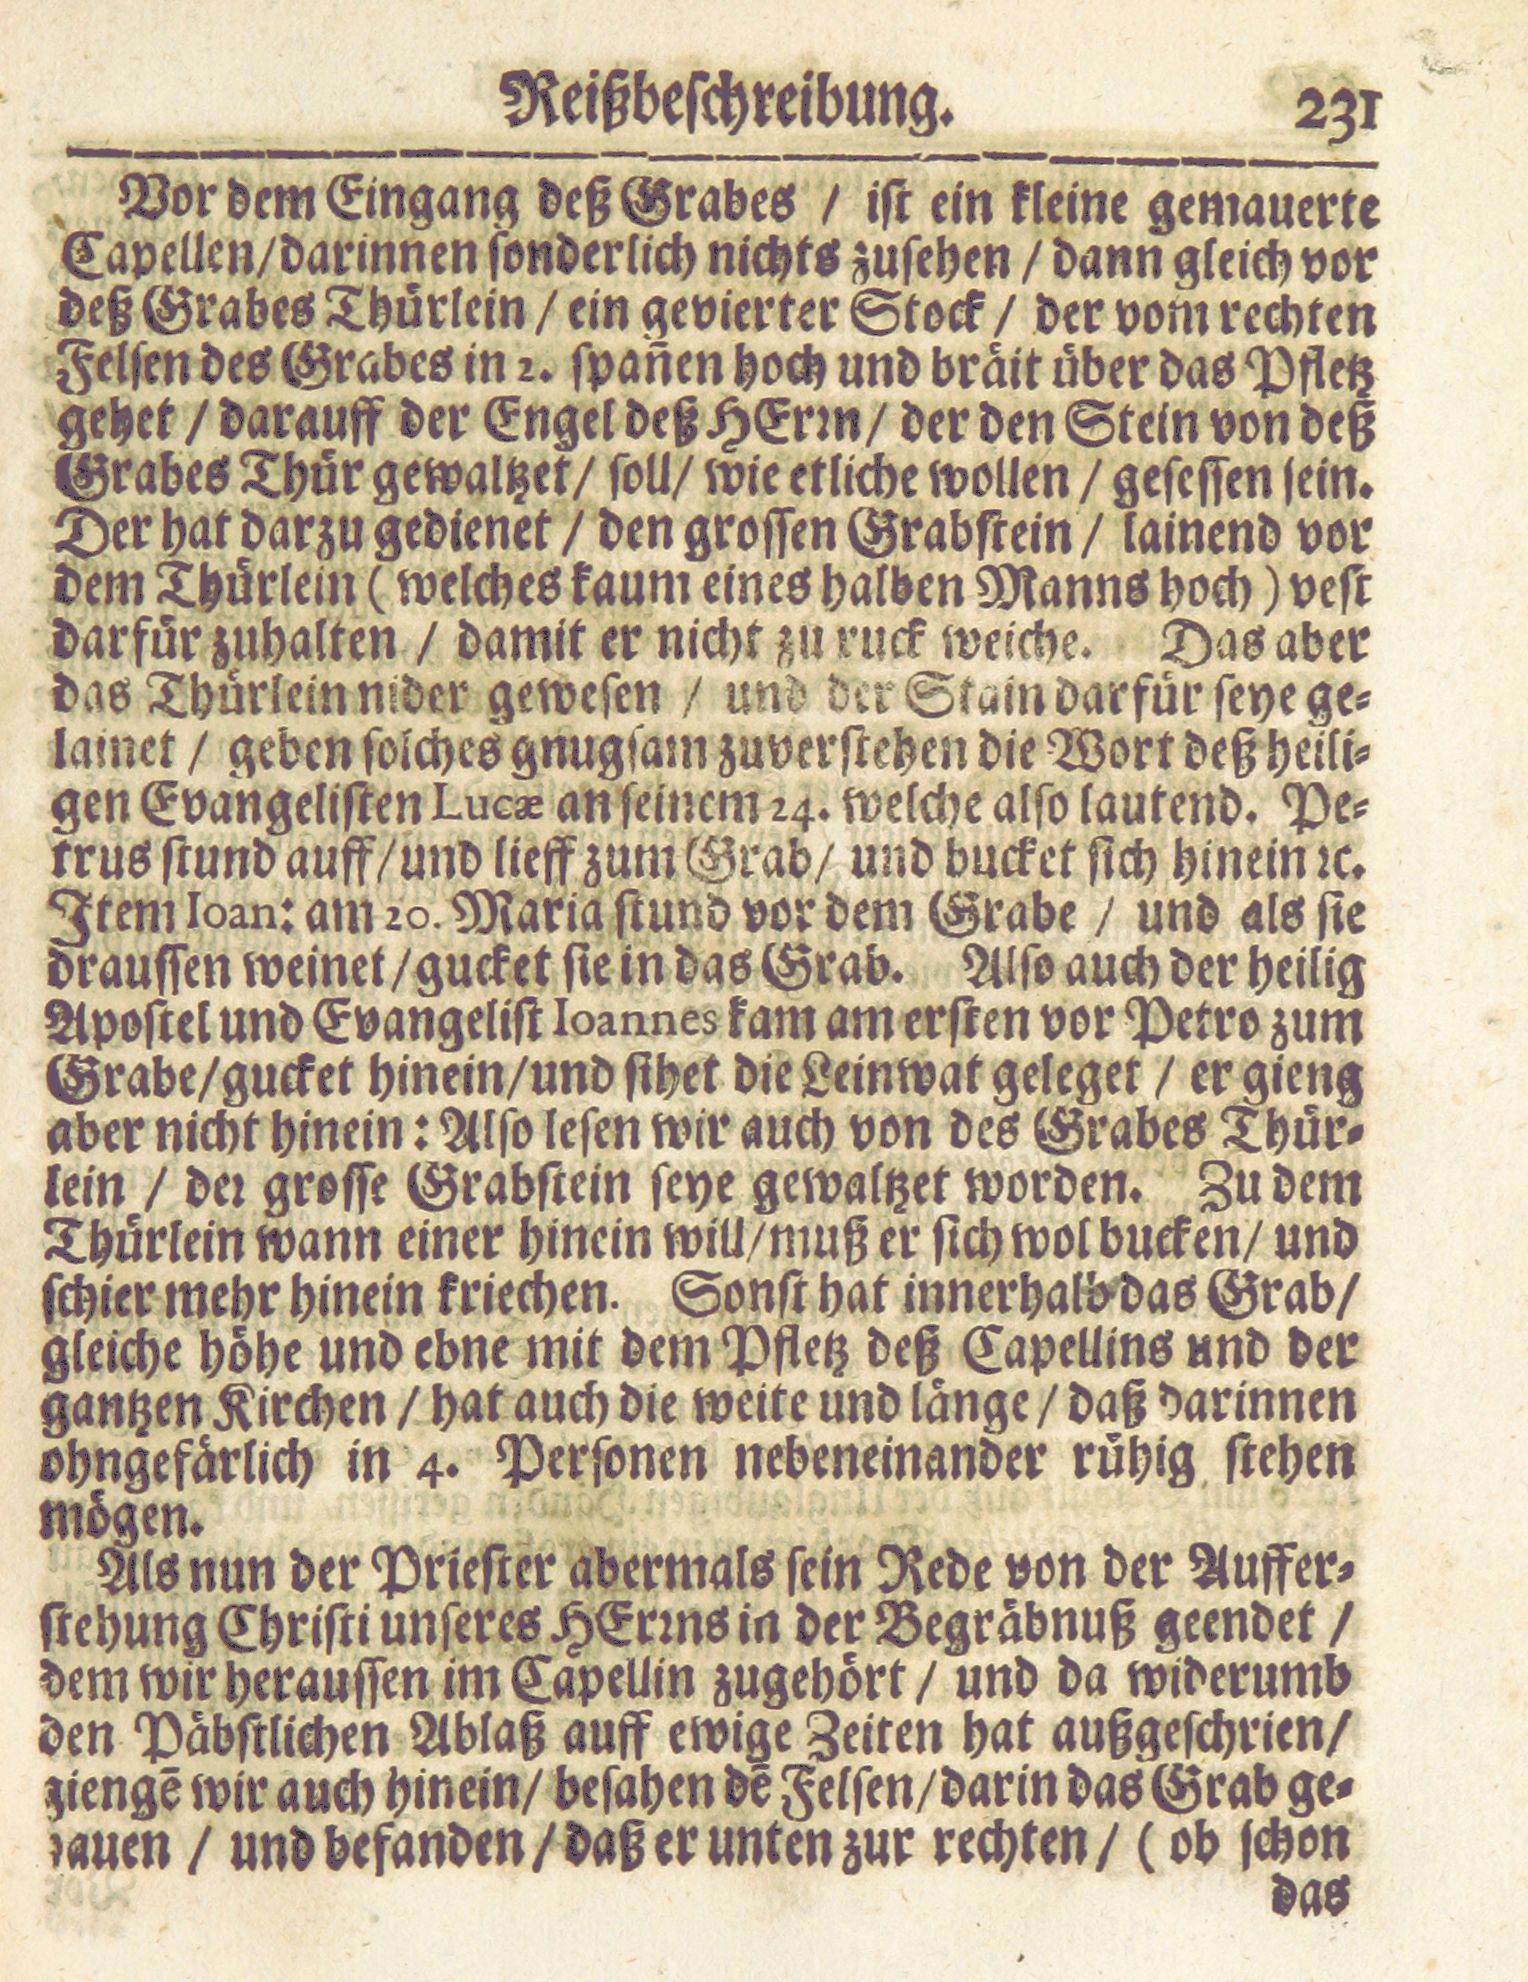 Reißbeſchreibung. 231
Vor dem Eingang deß Grabes / iſt ein kleine gemauerte
Capellen/darinnen ſonderlich nichts zuſehen / dann gleich vor
deß Grabes Thürlein / ein gevierter Stock / der vom rechten
Felſen des Grabes in 2. ſpañen hoch und bräit über das Pfletz
gehet / darauff der Engel deß HErꝛn/ der den Stein von deß
Grabes Thür gewaltzet/ ſoll/ wie etliche wollen / geſeſſen ſein.
Der hat darzu gedienet / den groſſen Grabſtein / lainend vor
dem Thürlein ( welches kaum eines halben Manns hoch ) veſt
darfür zuhalten / damit er nicht zu ruck weiche. Das aber
das Thürlein nider geweſen / und der Stain darfür ſeye ge-
lainet / geben ſolches gnugſam zuverſtehen die Wort deß heili-
gen Evangeliſten Lucæ an ſeinem 24. welche alſo lautend. Pe-
trus ſtund auff/und lieff zum Grab/ und bucket ſich hinein ꝛc.
Item Ioan: am 20. Maria ſtund vor dem Grabe / und als ſie
drauſſen weinet/gucket ſie in das Grab. Alſo auch der heilig
Apoſtel und Evangeliſt Ioannes kam am erſten vor Petro zum
Grabe/gucket hinein/und ſihet die Leinwat geleget / er gieng
aber nicht hinein: Alſo leſen wir auch von des Grabes Thür-
lein / deꝛ groſſe Grabſtein ſeye gewaltzet worden. Zu dem
Thürlein wann einer hinein will/muß er ſich wol bucken/ und
ſchier mehr hinein kriechen. Sonſt hat innerhalb das Grab/
gleiche höhe und ebne mit dem Pfletz deß Capellins und der
gantzen Kirchen / hat auch die weite und länge / daß darinnen
ohngefärlich in 4. Perſonen nebeneinander rühig ſtehen
mögen.
Als nun der Prieſter abermals ſein Rede von der Auffer-
ſtehung Chriſti unſeres HErꝛns in der Begräbnuß geendet /
dem wir herauſſen im Capellin zugehört / und da widerumb
den Päbſtlichen Ablaß auff ewige Zeiten hat außgeſchrien/
giengē wir auch hinein/ beſahen dē Felſen/darin das Grab ge-
hauen / und befanden / daß er unten zur rechten / ( ob ſchon
das